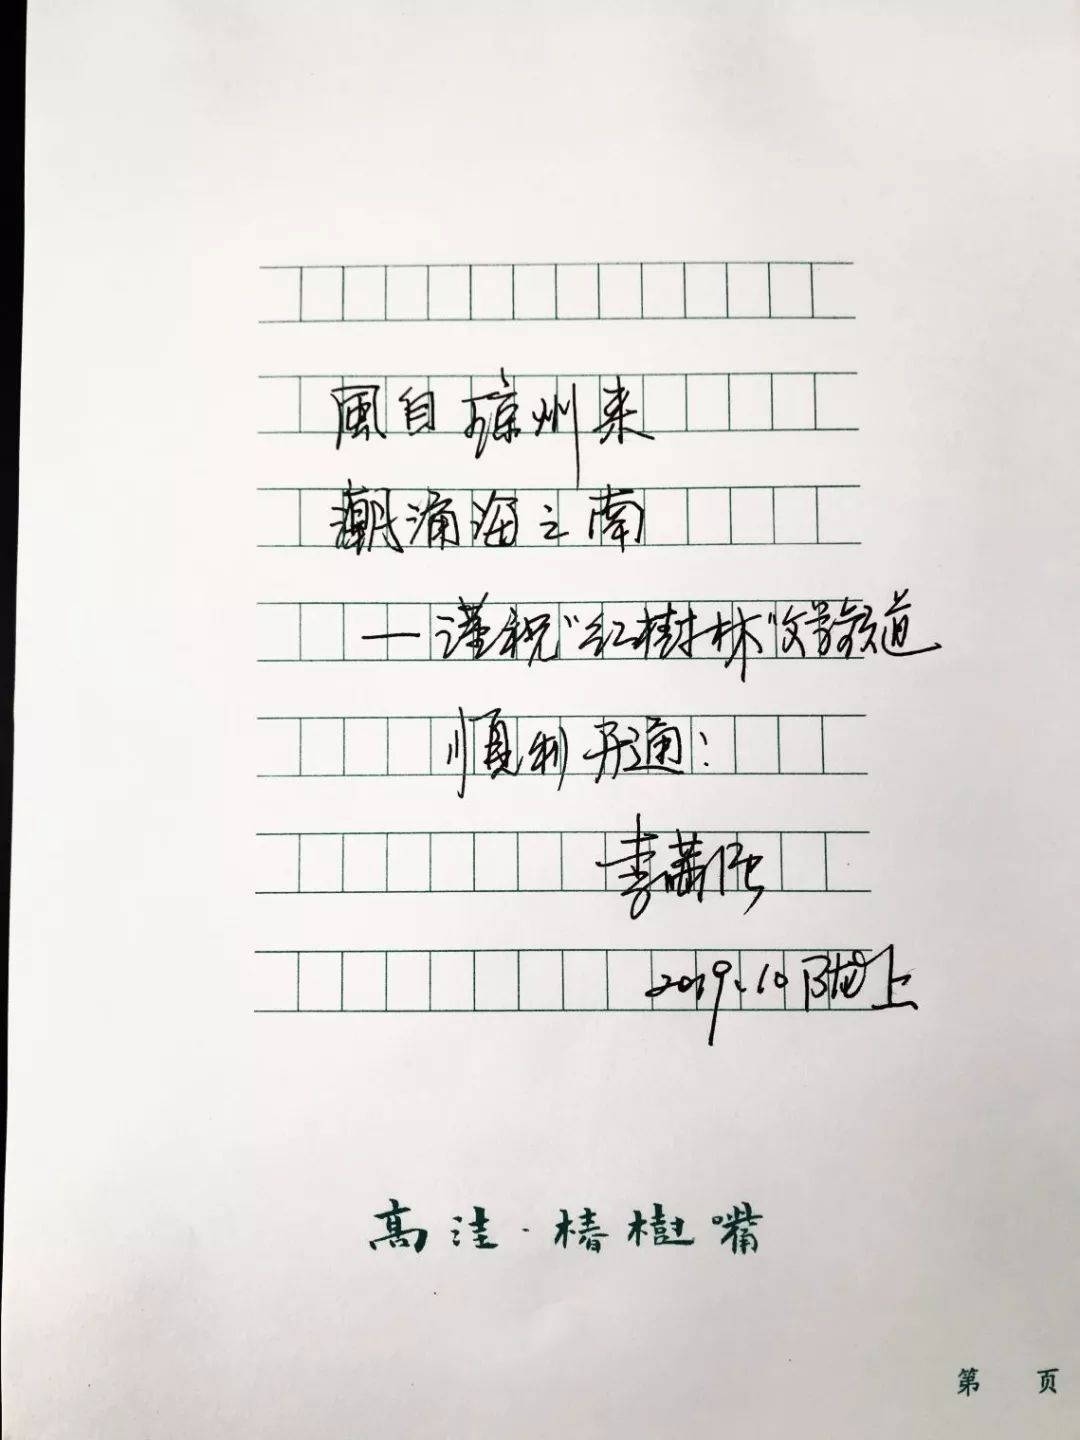 風自琼州来
潮涌海之南
——谨祝“红樹林”文学频道
順利开通！
李萧
2019.10 陇上
高洼·椿樹嘴
第 页